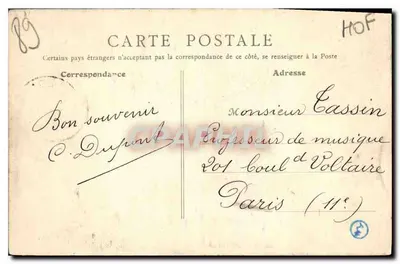 89
HOF
CARTE POSTALE
Certains pays étrangers n'acceptant pas la correspondance de ce côté, se renseigner à la Poste
Correspondance
Adresse
Bon souvenir
C. Dupont
Monsieur Tassin
Professeur de musique
201 Boul^d Voltaire
Paris (11e)